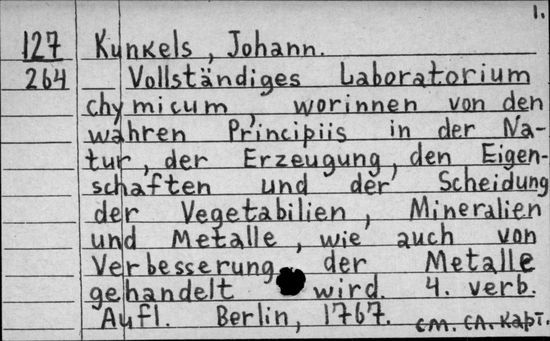 1.
127 Kunkels, Johann.
264 Vollständiges Laboratorium
chymicum, worinnen von den
wahren Principiis in der Na-
tur, der Erzeugung, den Eigen-
schaften und der Scheidung
der Vegetabilien, Mineralien
und Metalle, wie auch von
Verbesserung der Metalle
gehandelt wird. 4. verb.
Aufl. Berlin, 1767. см. сл. карт.